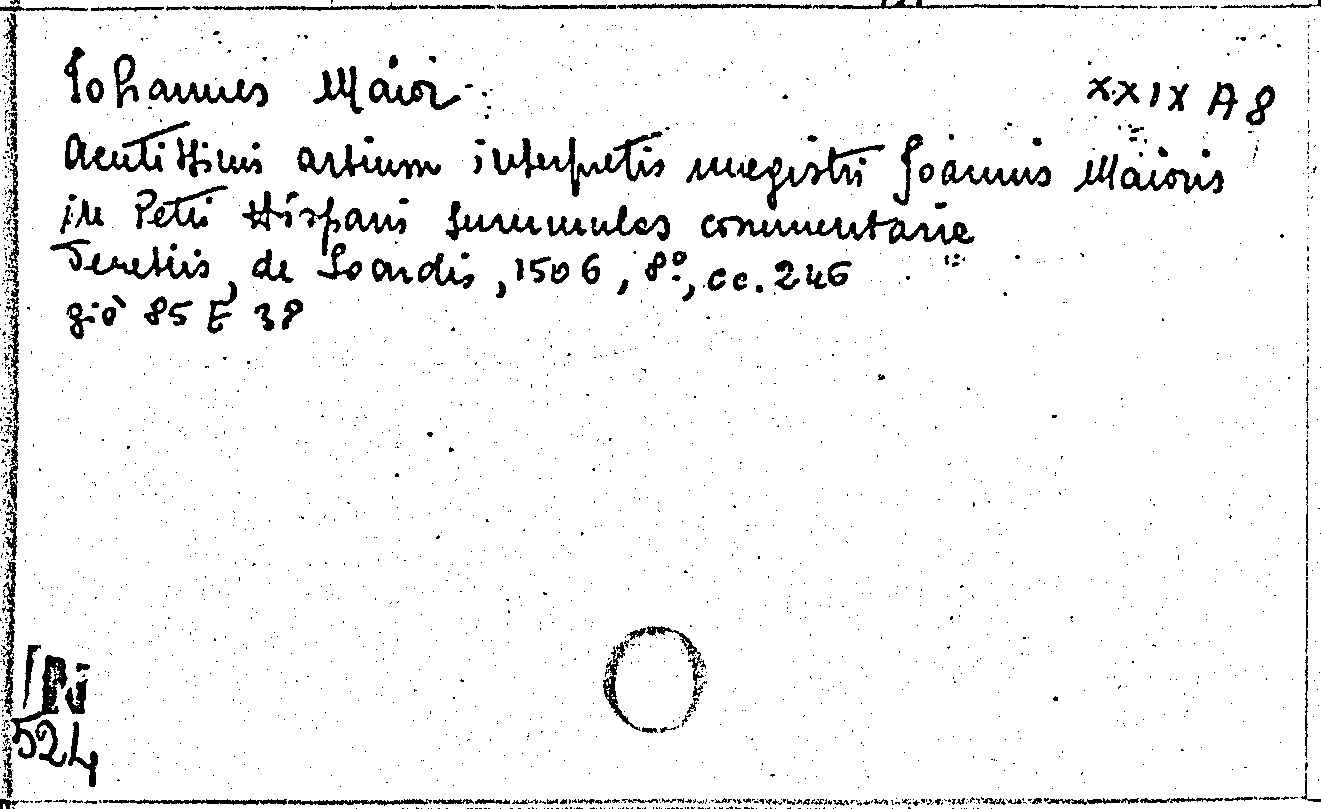 Iohannes Maior XXIX A 8
Acutissimi artium interpretis magistri Joannis Maioris
in Petri Hispani summulas commentaria
Venetiis, de Soardis, 1506, 8º, cc. 246
già 85 E 38
IN
524